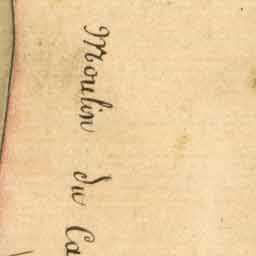 Moulin du Ca